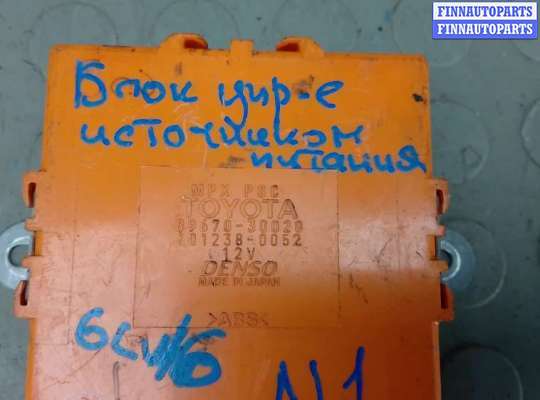 FINNAUTOPARTS
FINNAUTOPARTS
Блок упр-е
источником
питания
MPX PSC
TOYOTA
89670-30020
201238-0052
12V
DENSO
MADE IN JAPAN
>ABS<
N1